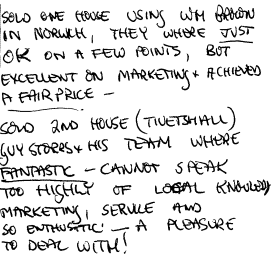 SOLD ONE HOUSE USING WM BROWN
IN NORWICH, THEY WHERE JUST
OK ON A FEW POINTS, BUT
EXCELLENT ON MARKETING & ACHIEVED
A FAIR PRICE –
SOLD 2ND HOUSE (TIVETSHALL)
GUY STORRS & HIS TEAM WHERE
FANTASTIC – CANNOT SPEAK
TOO HIGHLY OF LOCAL KNOWLEDGE
MARKETING, SERVICE AND
SO ENTHUSIASTIC — A PLEASURE
TO DEAL WITH!